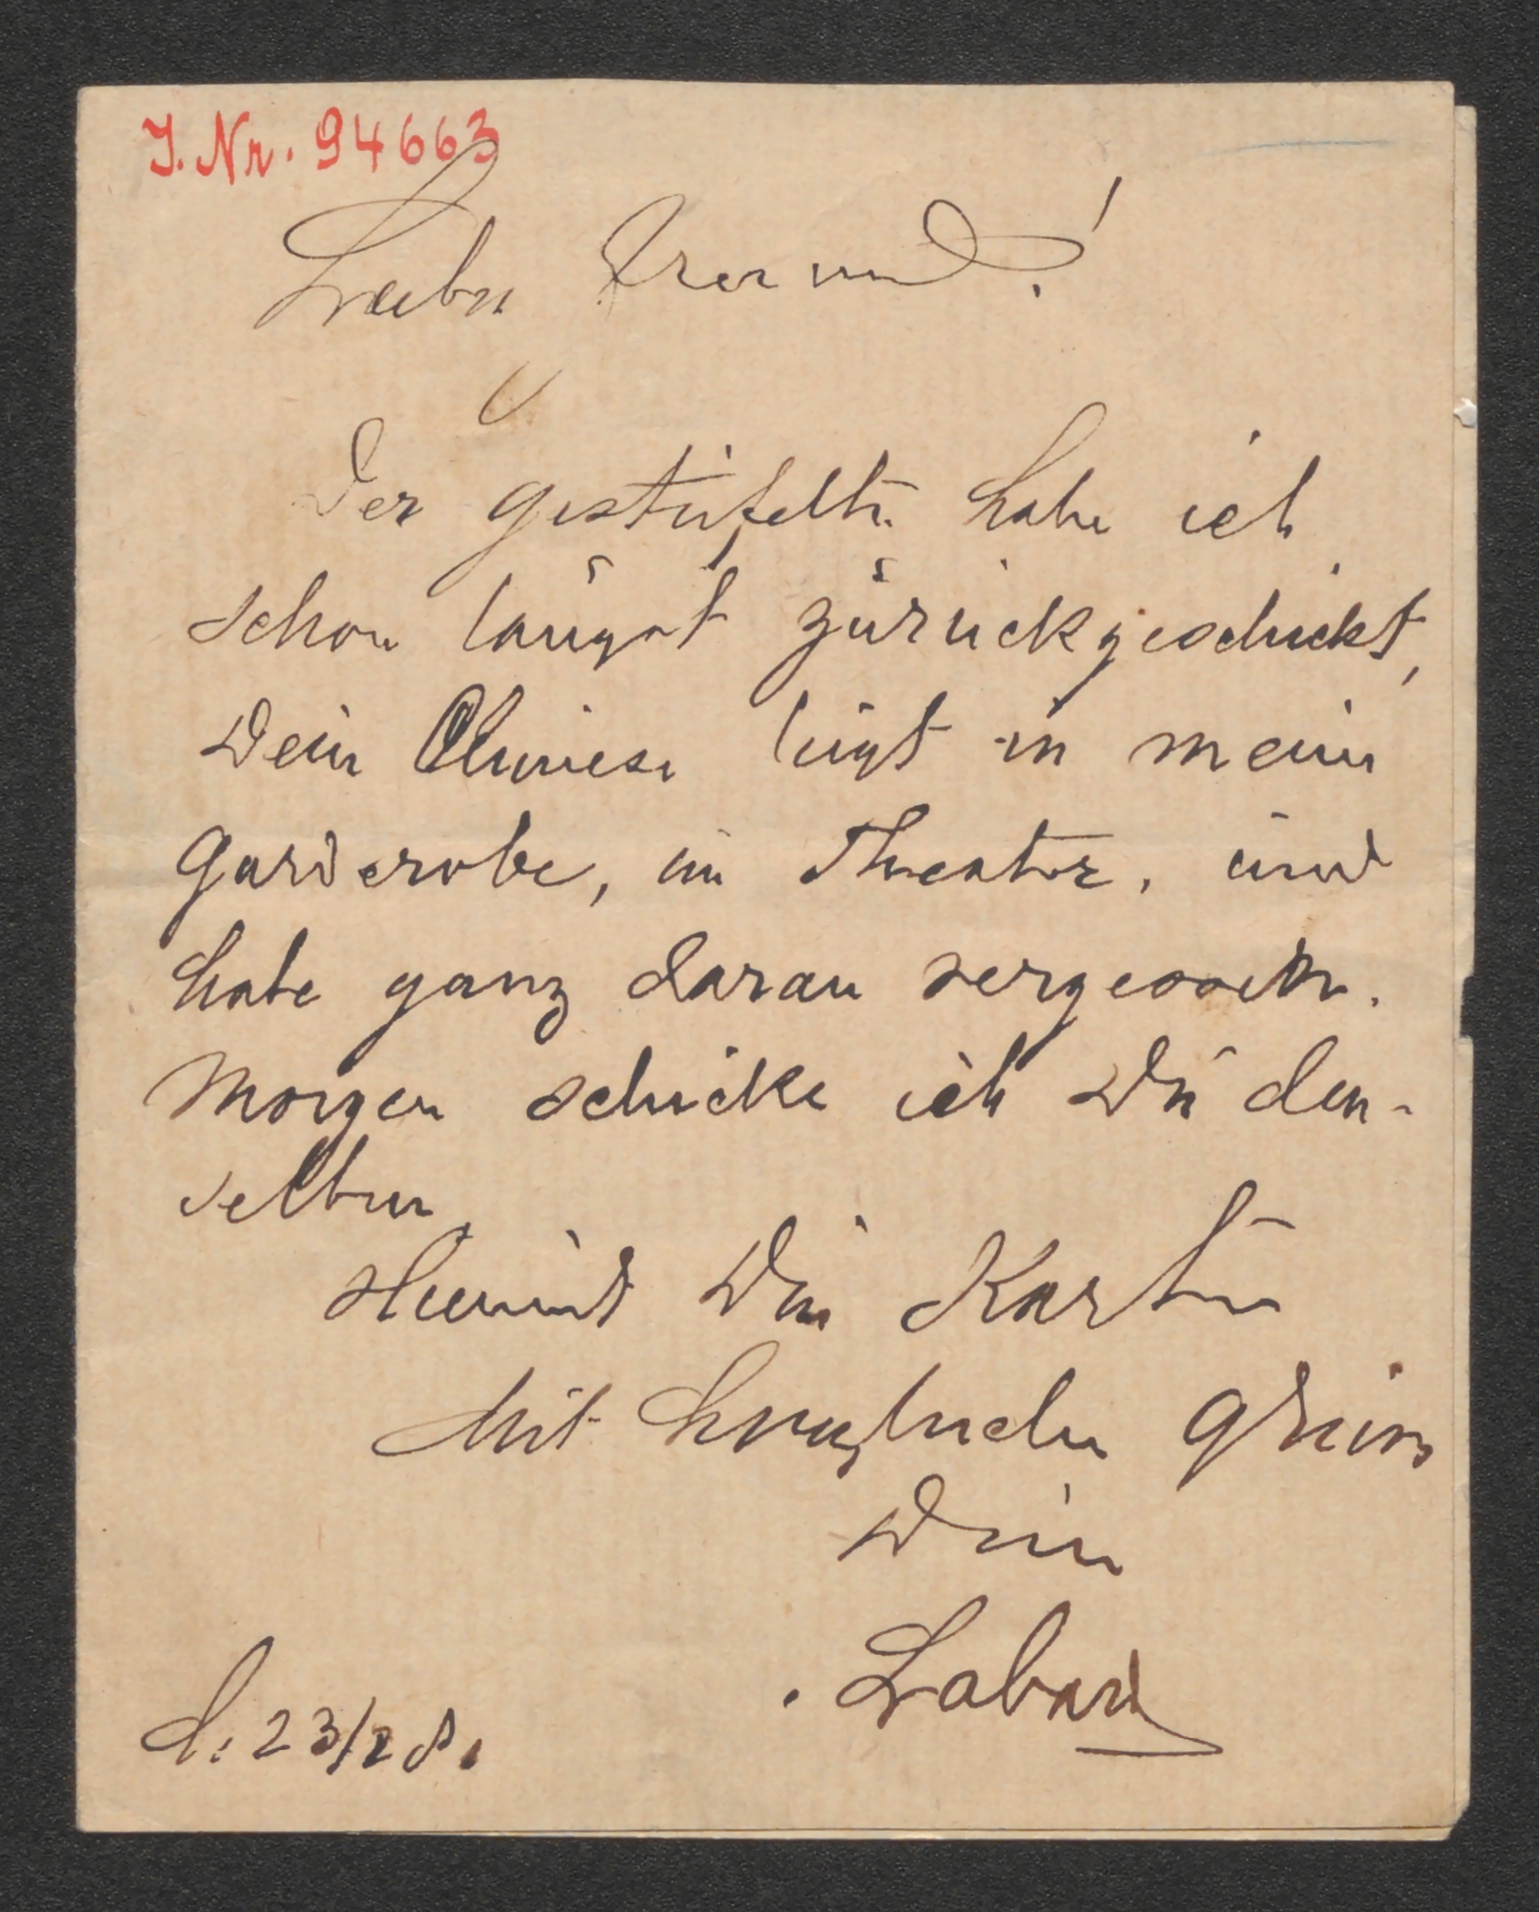 J. Nr. 94663
Lieber Freund!
Der gestiefelte habe ich
schon längst zurückgeschickt,
Dein Chinese liegt in mein
Garderobe, im Theater, und
habe ganz daran vergessen.
Morgen schicke ich Dir den-
selben
Hiermit Die Karten
Mit herzlichen Gruss
Dein
d. 23/2 8.